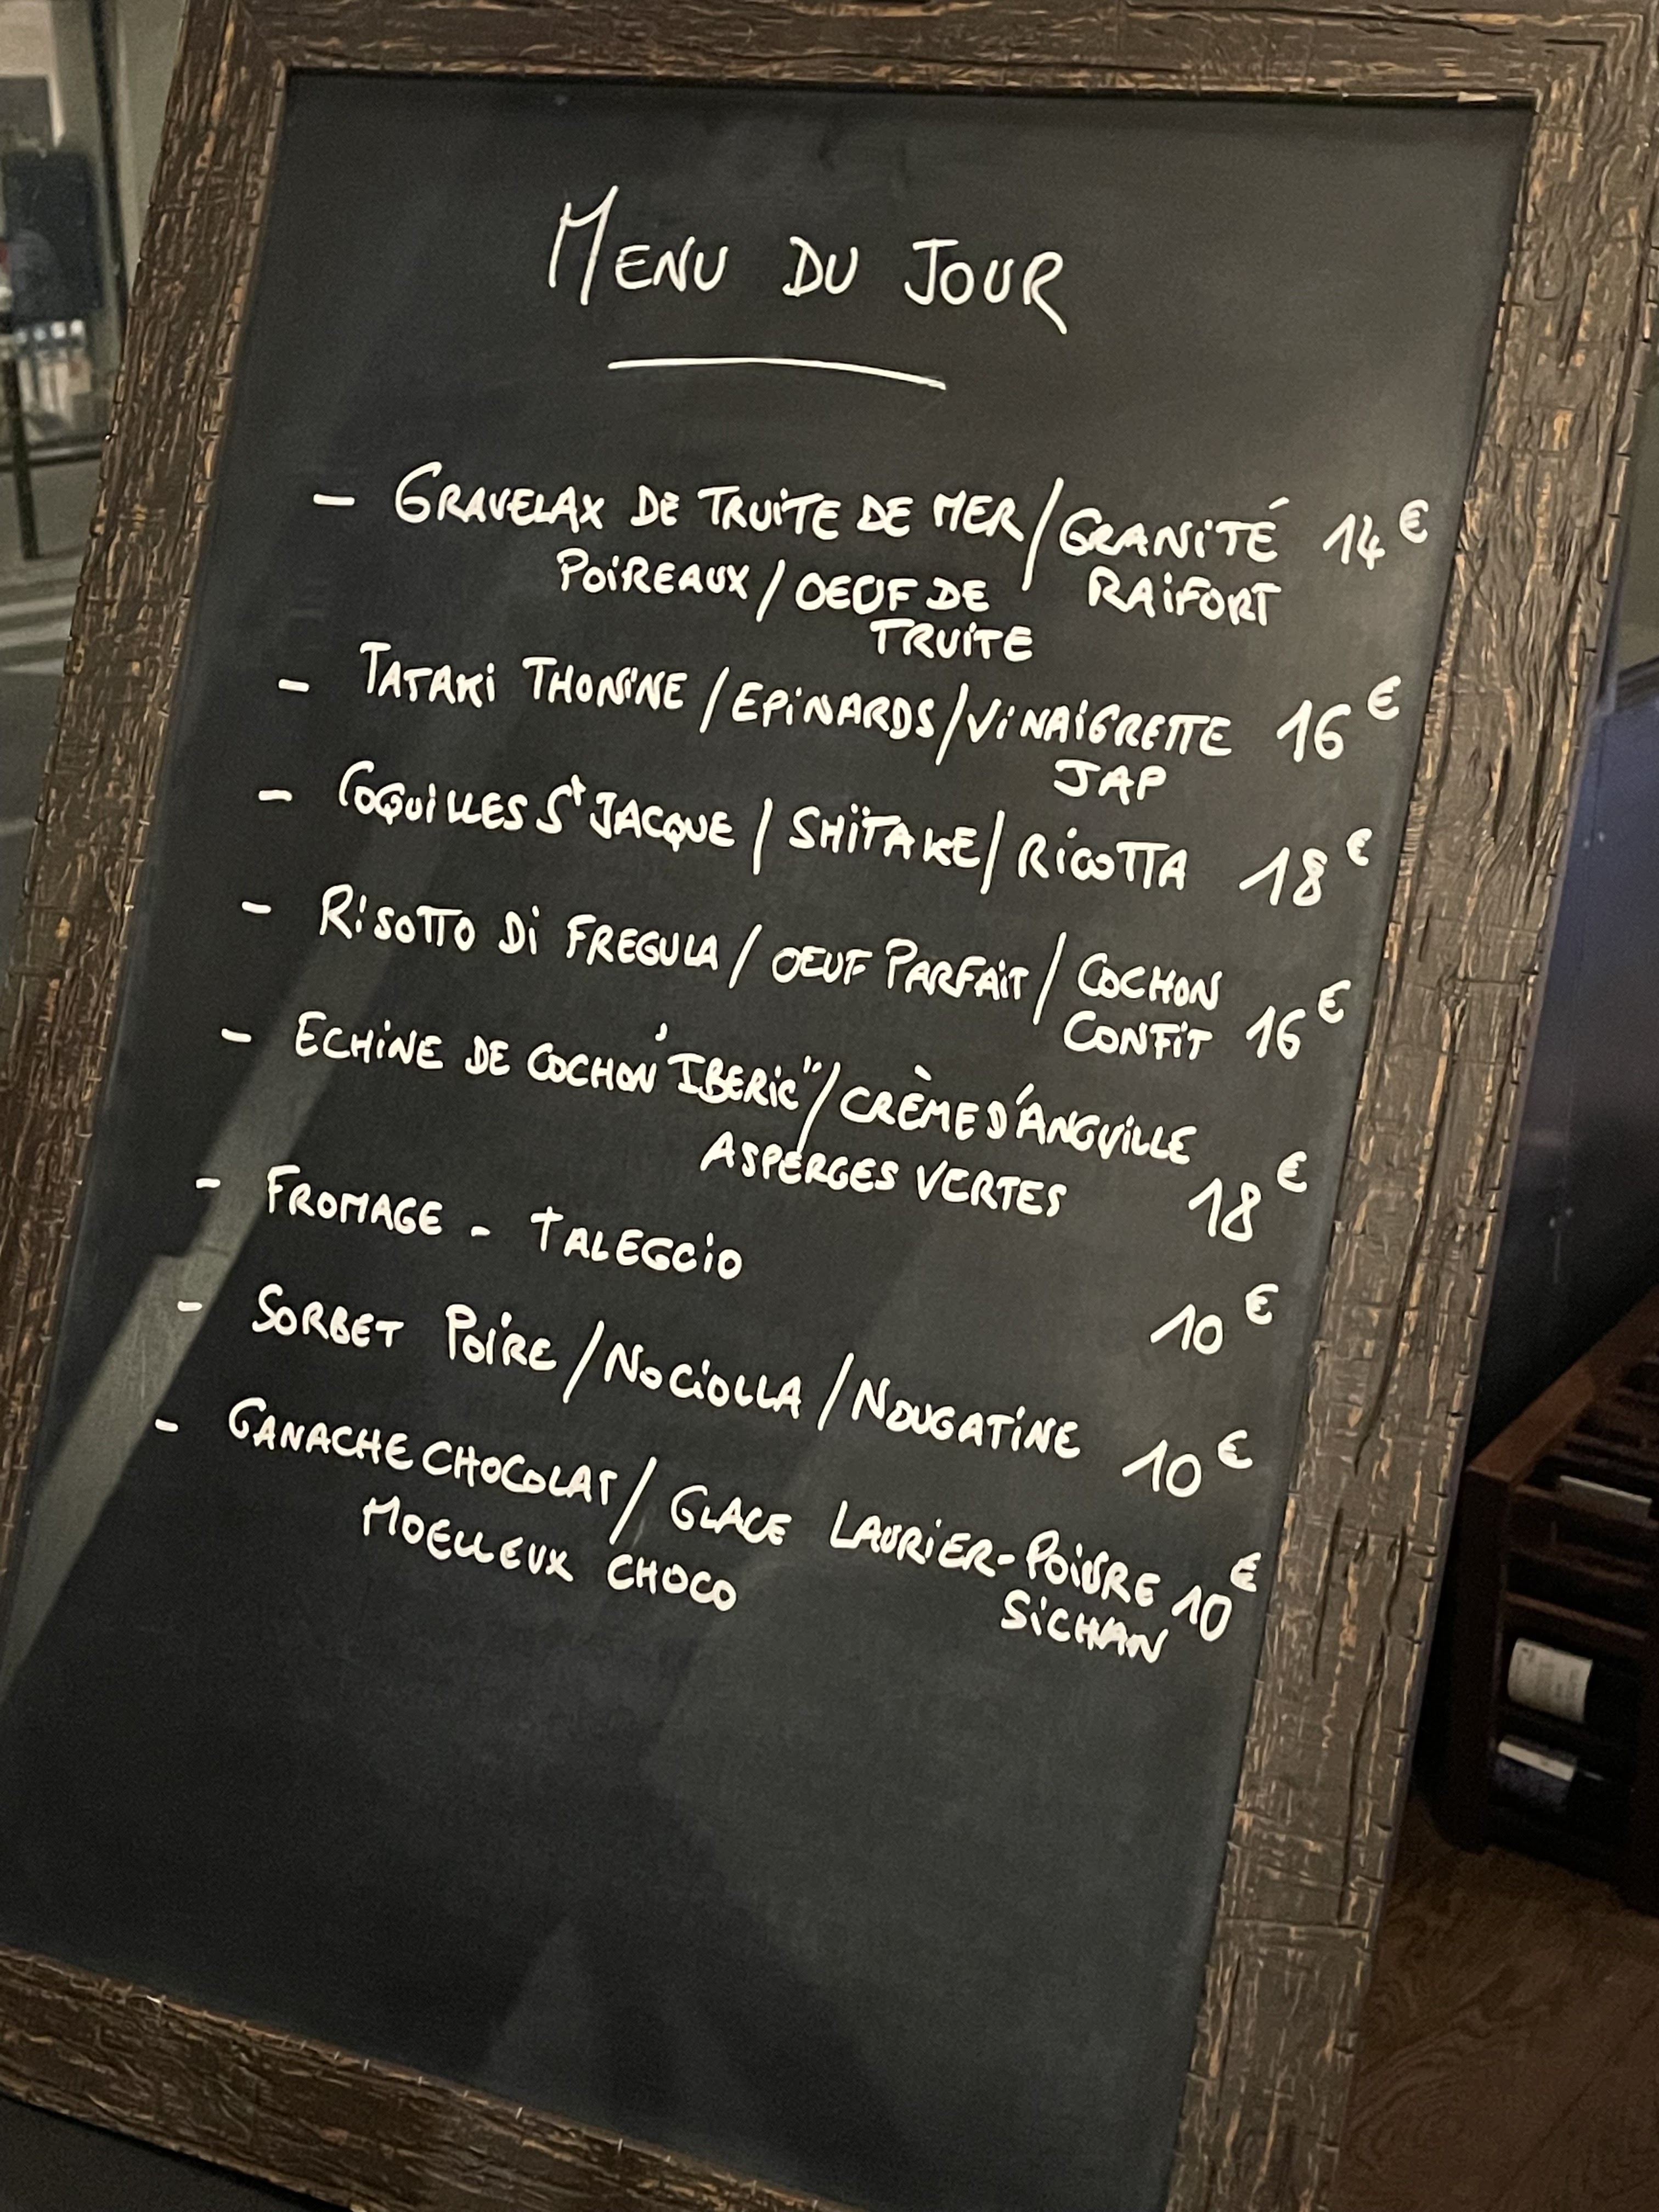 MENU DU JOUR
- GRAVELAX DE TRUITE DE MER / GRANITÉ 14€
POIREAUX / OEUF DE RAIFORT
TRUITE
- TATAKI THONINE / EPINARDS / VINAIGRETTE 16€
JAP
- COQUILLES St JACQUE / SHITAKE / RICOTTA 18€
- RISOTTO DI FREGULA / OEUF PARFAIT / COCHON
CONFIT 16€
- ECHINE DE COCHON "IBERIC" / CRÈME D'ANGUILLE
ASPERGES VERTES 18€
- FROMAGE - TALEGGIO 10€
- SORBET POIRE / NOCIOLLA / NOUGATINE 10€
- GANACHE CHOCOLAT / GLACE LAURIER-POIVRE 10€
MOELLEUX CHOCO SICHAN